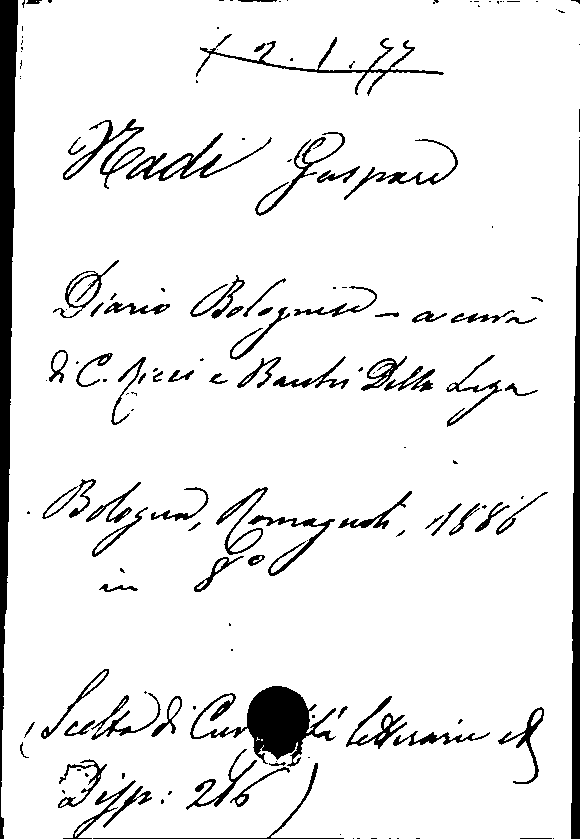 12.1.77
Nadi Gaspare
Diario Bolognese - a cura
di C. Ricci e Bacchi Della Lega
Bologna, Romagnoli, 1886
in 8°
(Scelta di Curiosità letterarie ed
Disp: 216)